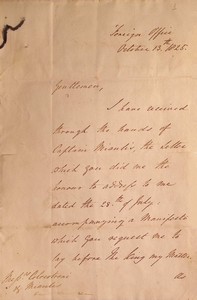 Foreign Office
October 13th 1825.
Gentlemen,
I have received
through the hands of
Captain
the letter
which you did me the
honor to address to me
dated the 28th of July
accompanying a Manifesto
which you request me to
lay before the King my Master.
the